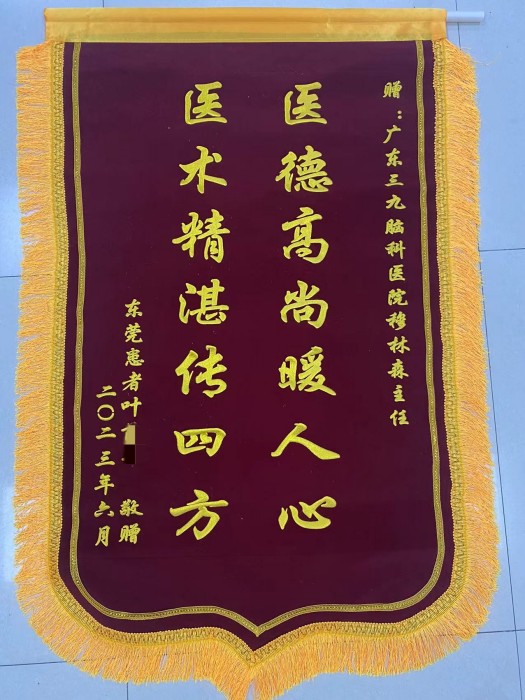 赠：广东三九脑科医院穆林森主任
医德高尚暖人心
医术精湛传四方
东莞患者叶 敬赠
二〇二三年六月